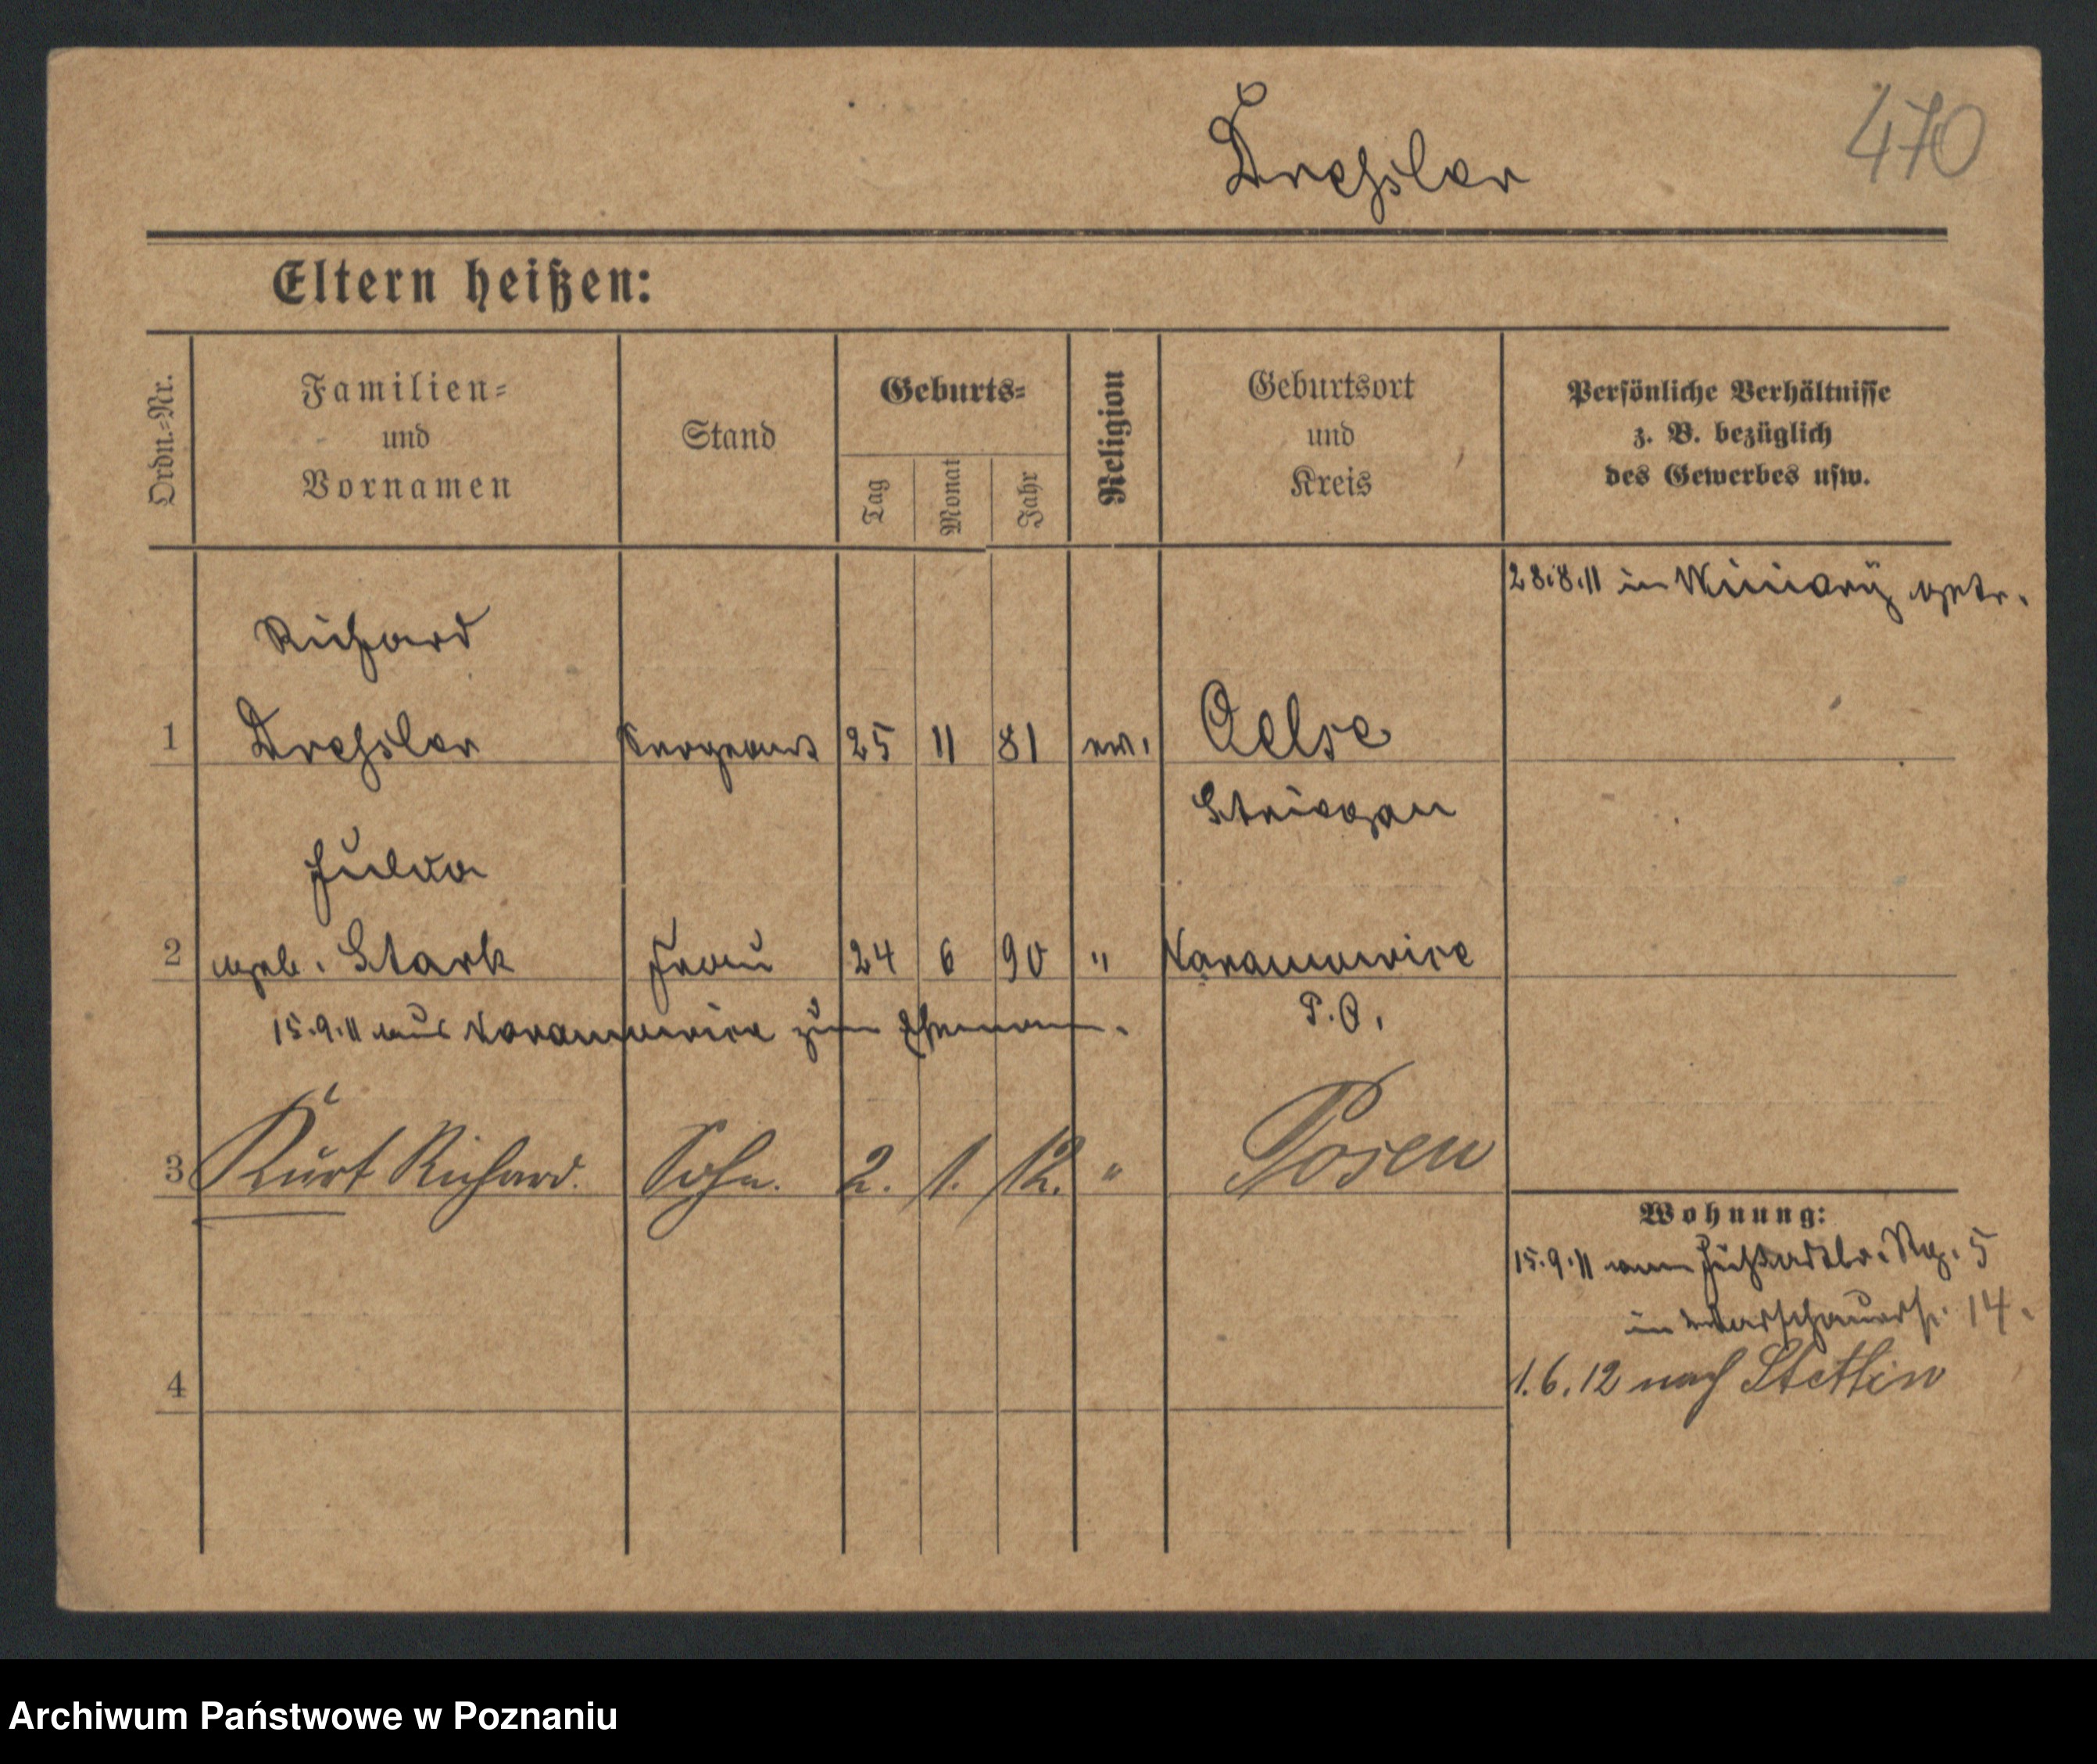 470
Dressler
Eltern heißen:
Ordn.-Nr.
Familien-
und
Vornamen
Stand
Geburts-
Tag
Monat
Jahr
Religion
Geburtsort
und
Kreis
Persönliche Verhältnisse
z. B. bezüglich
des Gewerbes usw.
28.8.11 in getr.
Richard
1 Dressler Sergeant 25 11 81 ev. Oelse
Striegau
2 geb. Stark Frau 24 6 90 "
P. O.
15.9.11 aus zum Ehemann.
3 Kurt Richard. Sohn. 2. 1. 12. " Posen
Wohnung:
15.9.11 Rg. 5
in Warschauerstr. 14.
4
1.6.12 nach Stettin
Archiwum Państwowe w Poznaniu